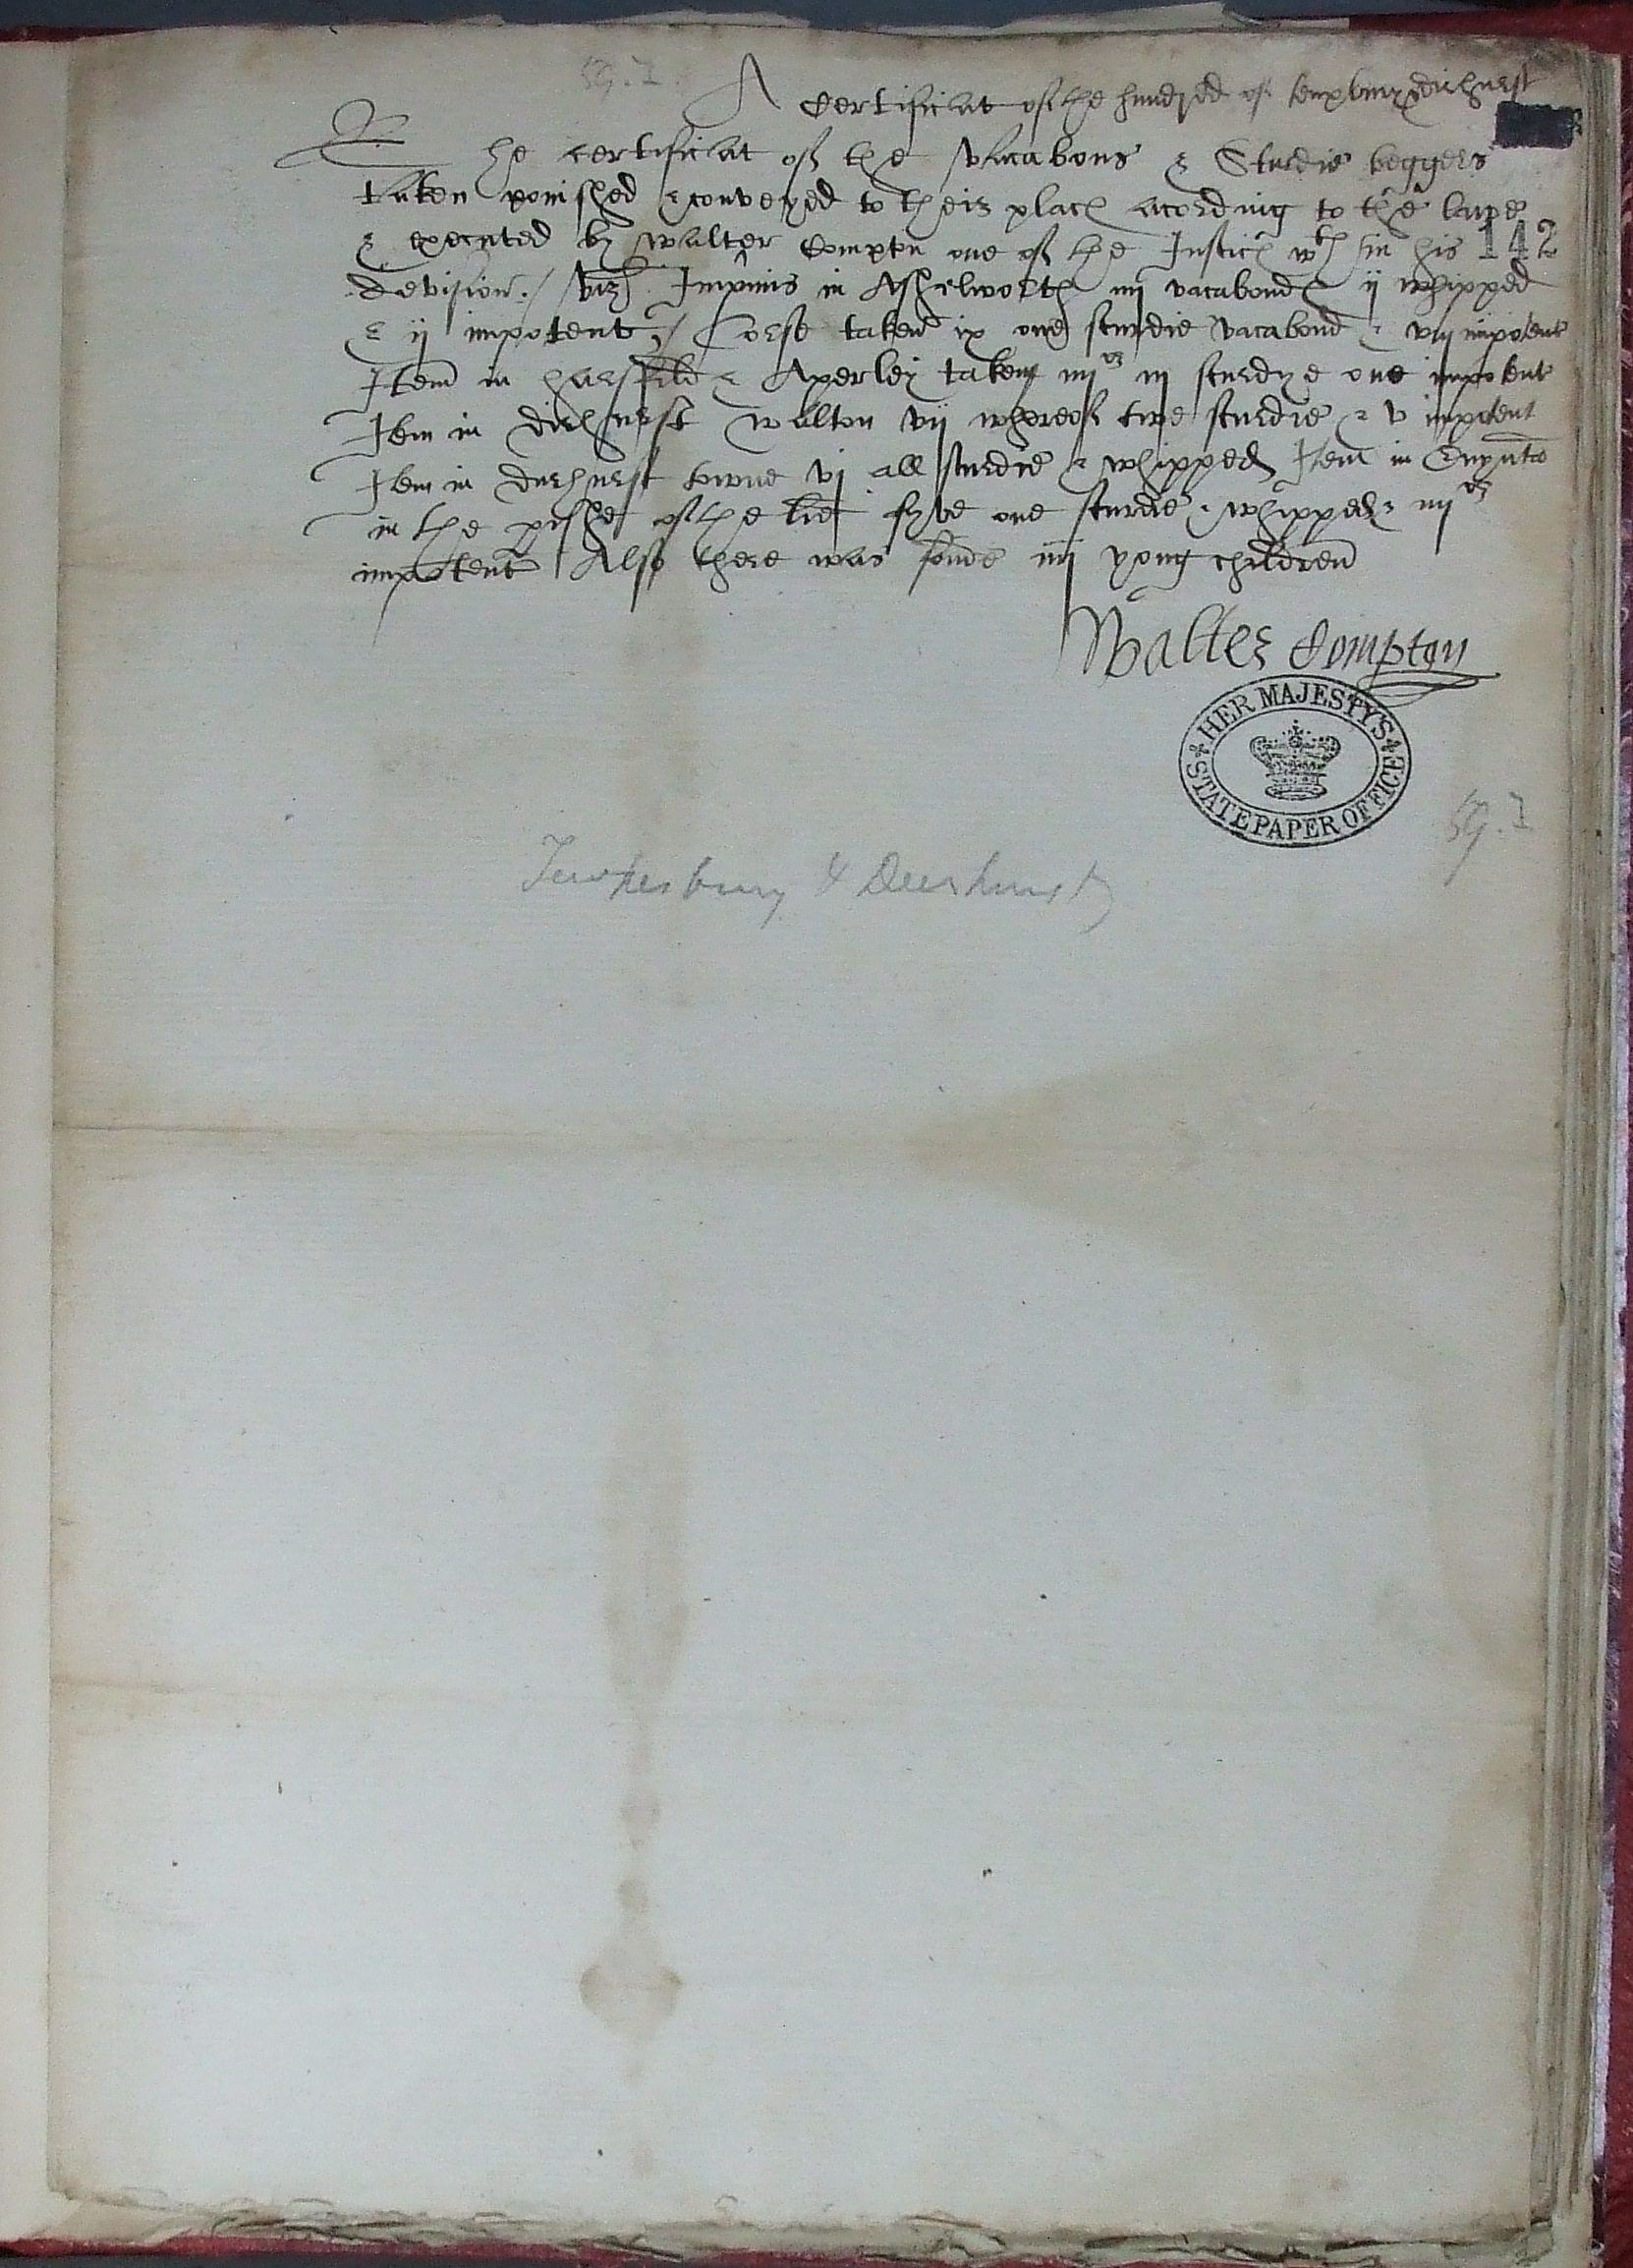 59. I
A Certificat of the hundred of teuxbury & dirhurst
The certificat of the vacabons & Sturdie beggers
taken ponished & conveyed to theis places acording to the lawe
& executed by walter Compton one of the Justices wth in his 142
devision./ viz Imprimis in Ashelworth iiij vacabondes ij whipped
& ij impotent / Corse taken ix one sturdie vacabond & viij impotent
Item in hasfild & Aperley taken iiijor iij sturdye one impotent
Item in dirhurst walton vij whereof twe sturdie & v impotent
Item in durhurst towne vj all sturdie & whipped Item in
in the pishe of the lie fyve one sturdie & whipped & iiijor
impotent Also there was fonde iiij yong children
Walter Compton
HER MAJESTY'S STATE PAPER OFFICE
59. I
Tewkesbury & Deerhurst